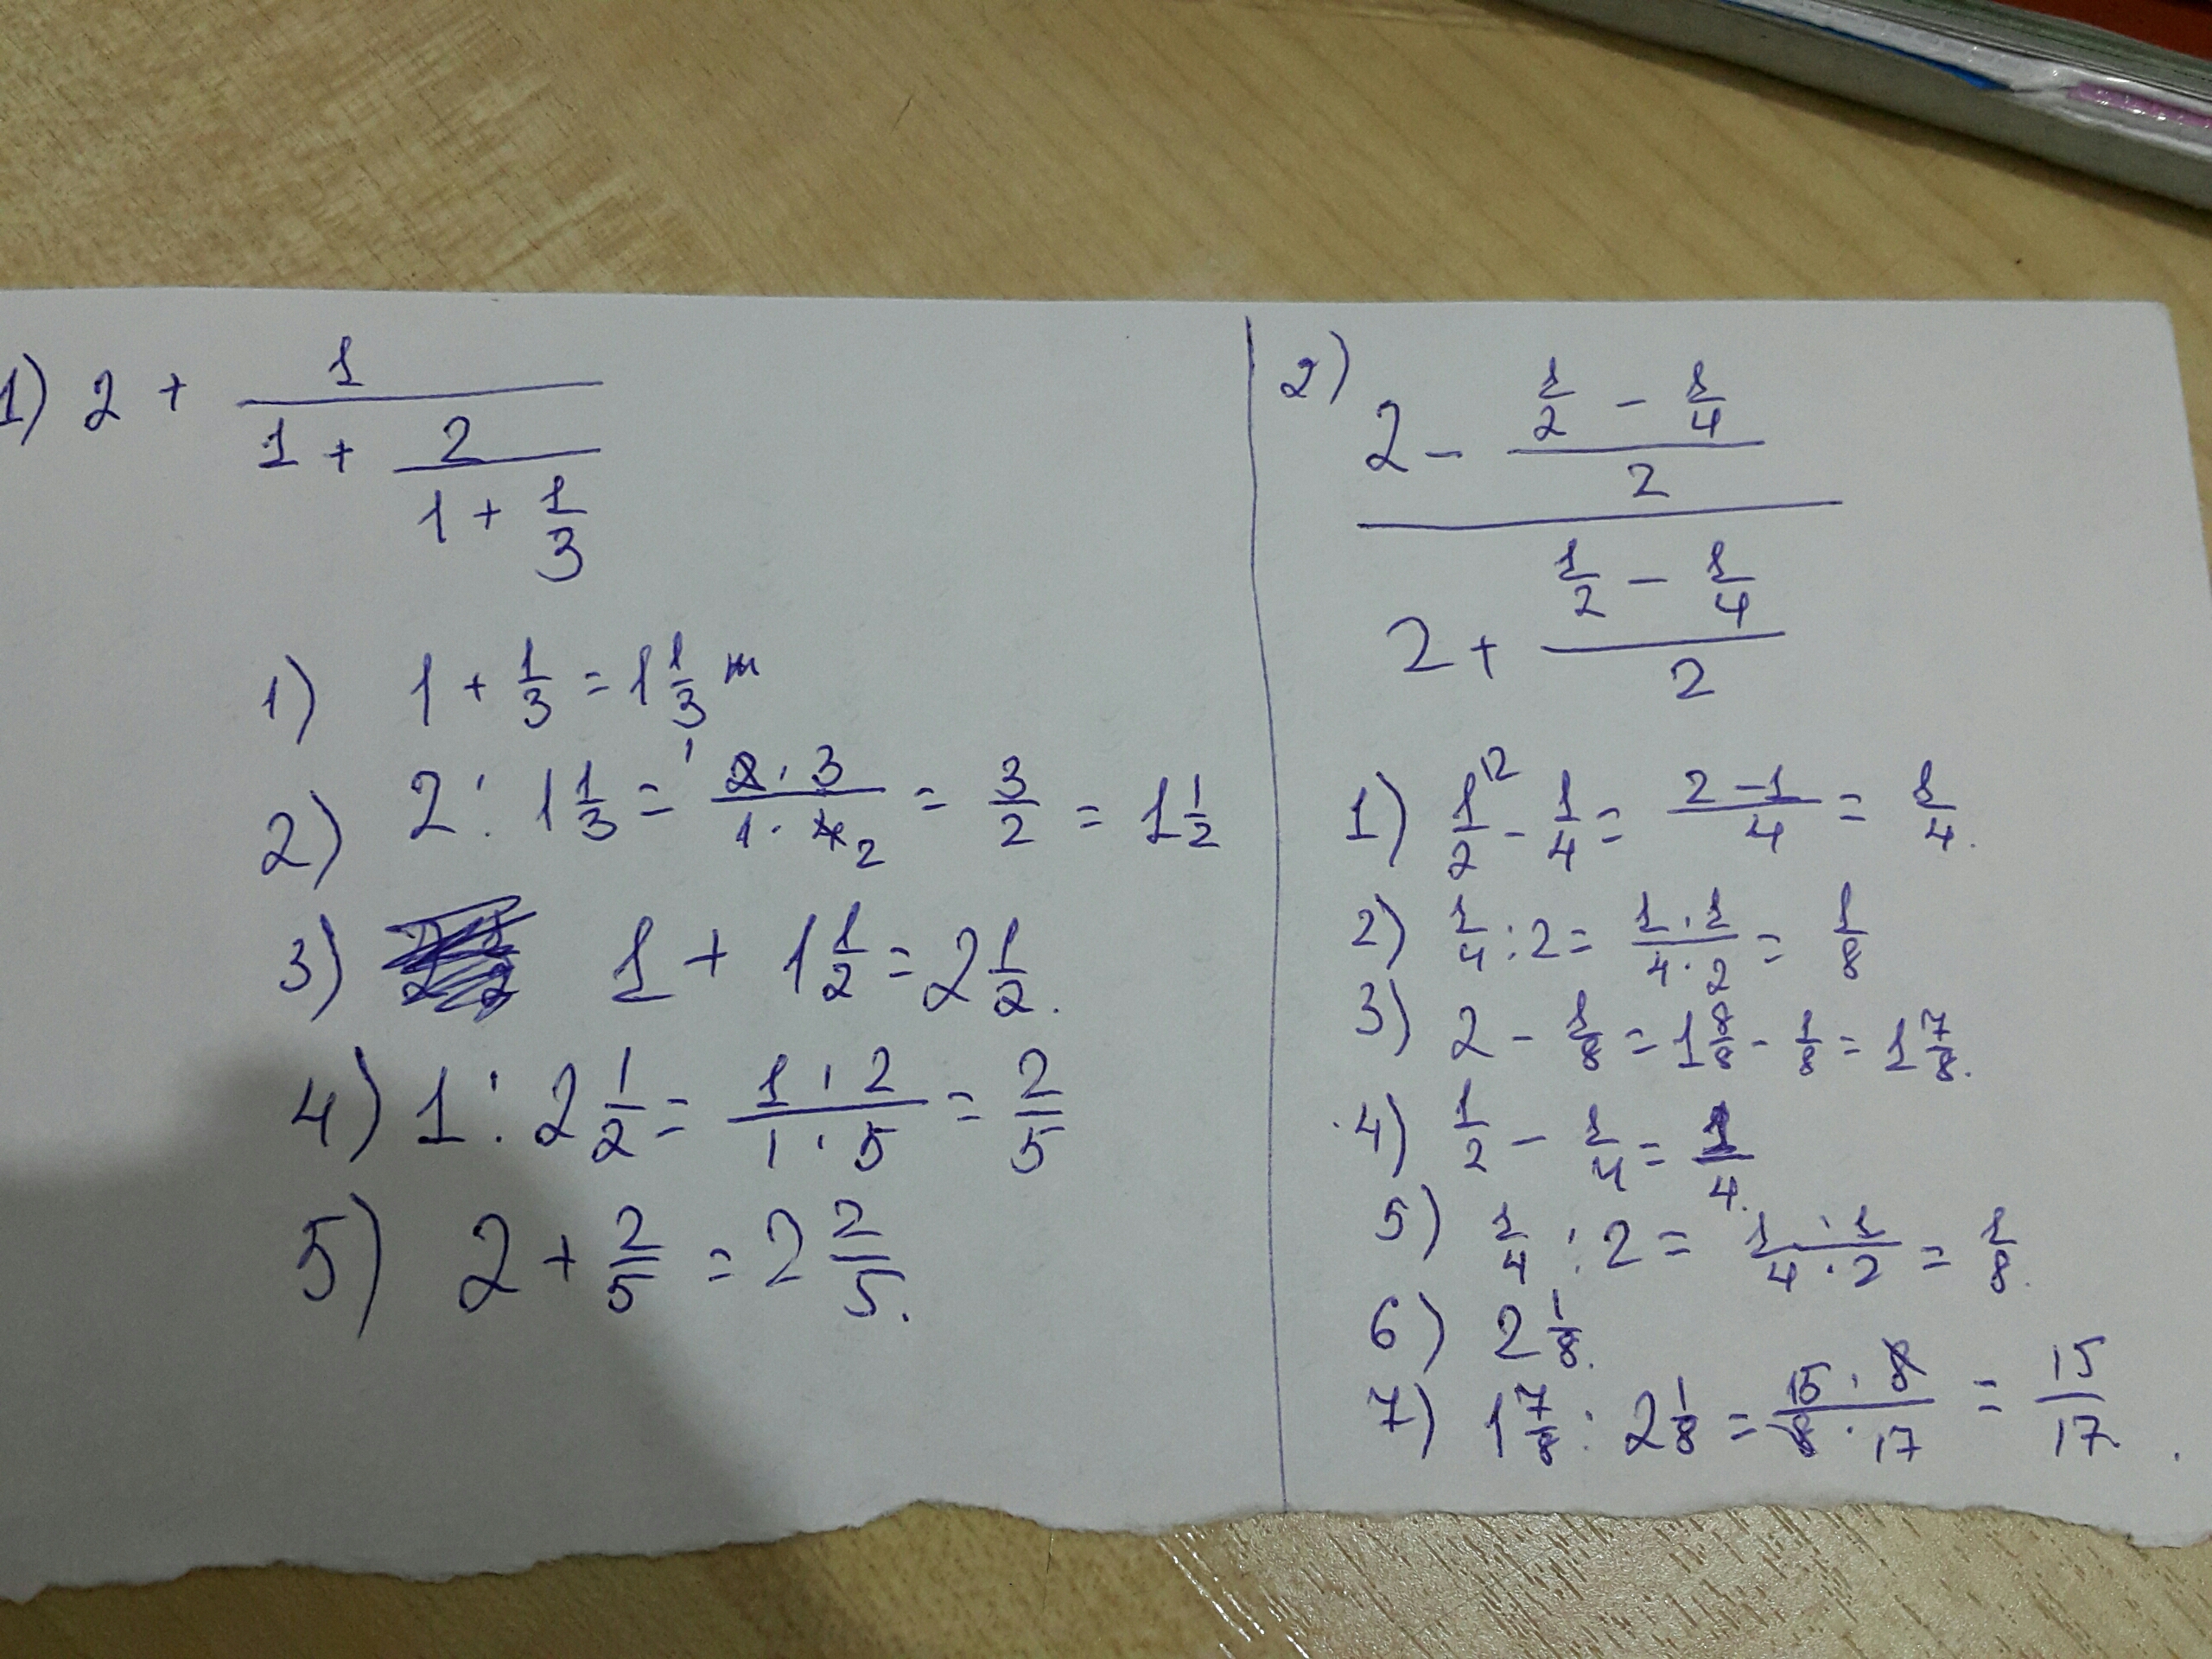 1) 2 + 1/(1 + 2/(1 + 1/3))
1) 1 + 1/3 = 1 1/3
2) 2 : 1 1/3 = (2 · 3)/(1 · 4) = 3/2 = 1 1/2
3) 1 + 1 1/2 = 2 1/2.
4) 1 : 2 1/2 = (1 · 2)/(1 · 5) = 2/5
5) 2 + 2/5 = 2 2/5.
2) (2 - (1/2 - 1/4)/2)/(2 + (1/2 - 1/4)/2)
1) 1/2 - 1/4 = (2 - 1)/4 = 1/4.
2) 1/4 : 2 = (1 · 1)/(4 · 2) = 1/8
3) 2 - 1/8 = 1 8/8 - 1/8 = 1 7/8.
4) 1/2 - 1/4 = 1/4.
5) 1/4 : 2 = (1 · 1)/(4 · 2) = 1/8.
6) 2 1/8.
7) 1 7/8 : 2 1/8 = (15 · 8)/(8 · 17) = 15/17.